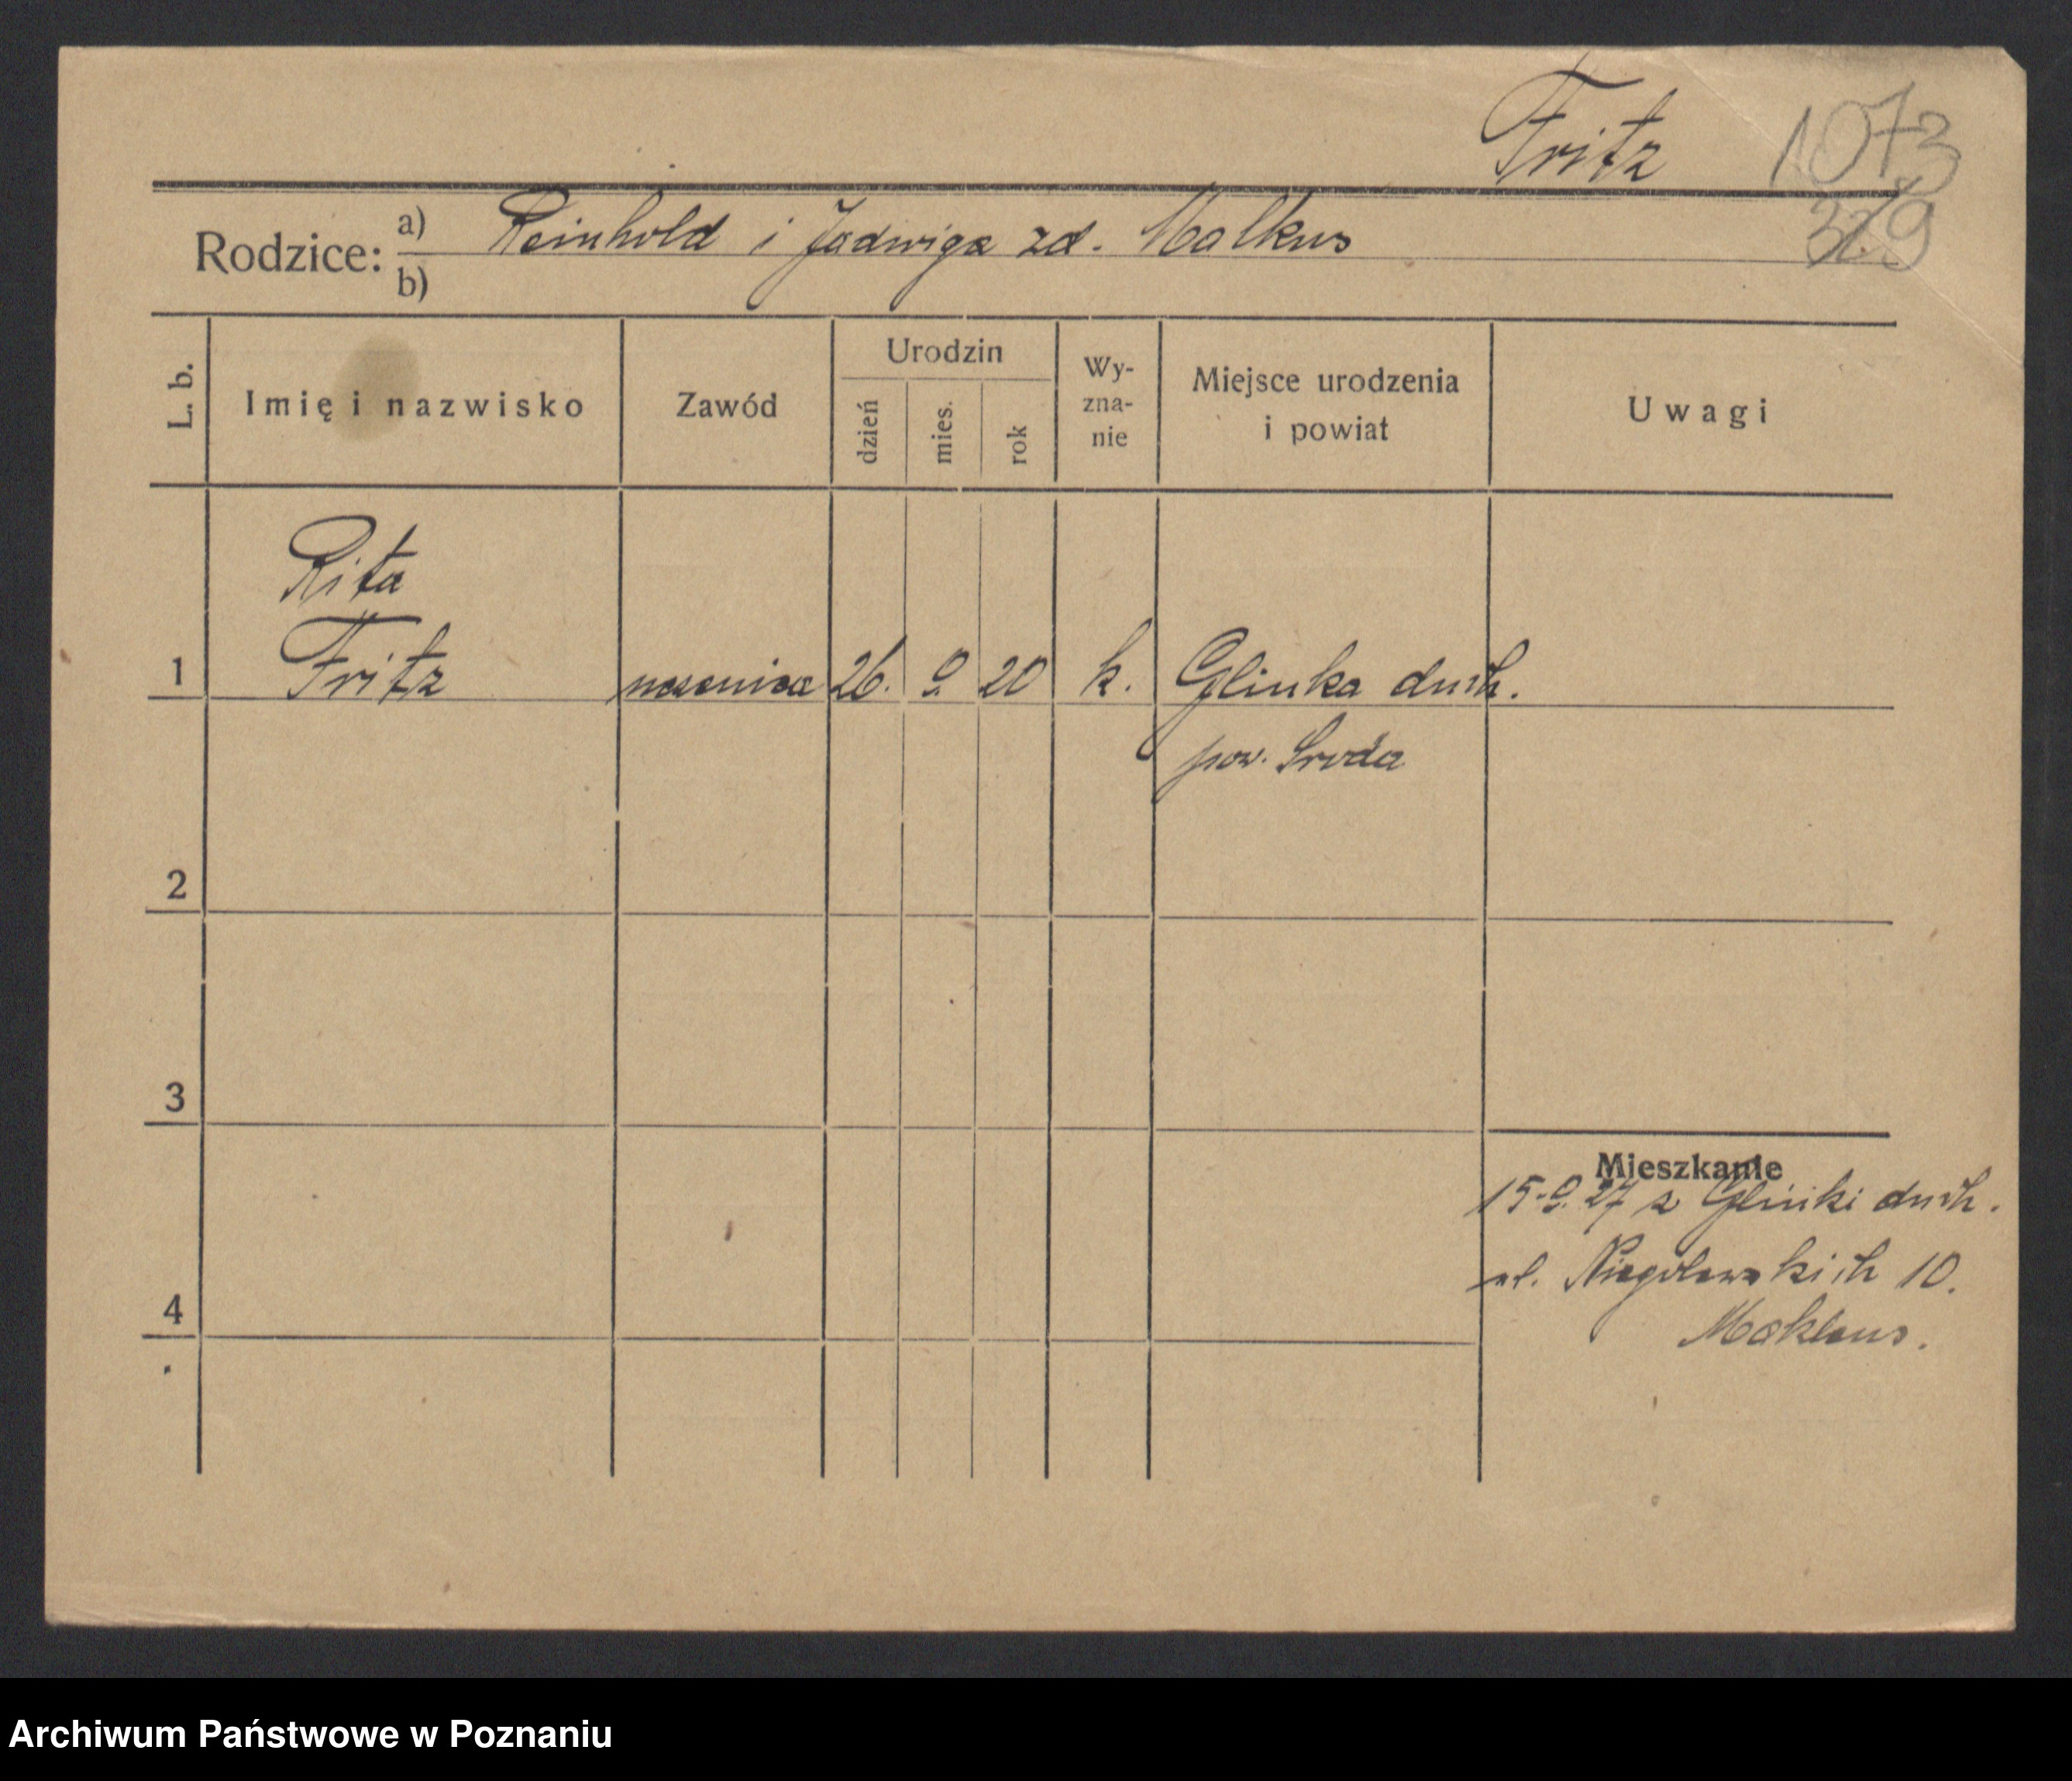 Fritz 1073
329
Rodzice: a) Reinhold i Jadwiga zd. Malkus
b)
L. b. Imię i nazwisko Zawód Urodzin dzień mies. rok Wy-zna-nie Miejsce urodzenia i powiat Uwagi
Rita
1 Fritz 26. 9. 20 k. Glinka duch.
pow. Środa
2
3
Mieszkanie
15.9.27 z Glinki duch.
ul. Niegolewskich 10.
4
Archiwum Państwowe w Poznaniu